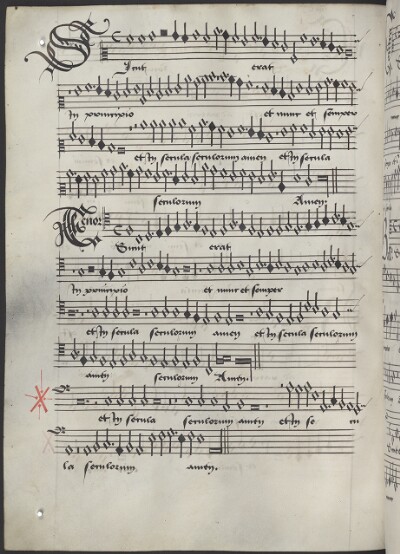 Sicut erat
In principio et nunc et semper
et In secula seculorum amen et In secula
seculorum Amen.
Teno:
Sicut erat
In principio et nunc et semper
et In secula seculorum amen et In secula seculorum
amen seculorum Amen.
et In secula seculorum amen et In se cu
la seculorum amen.